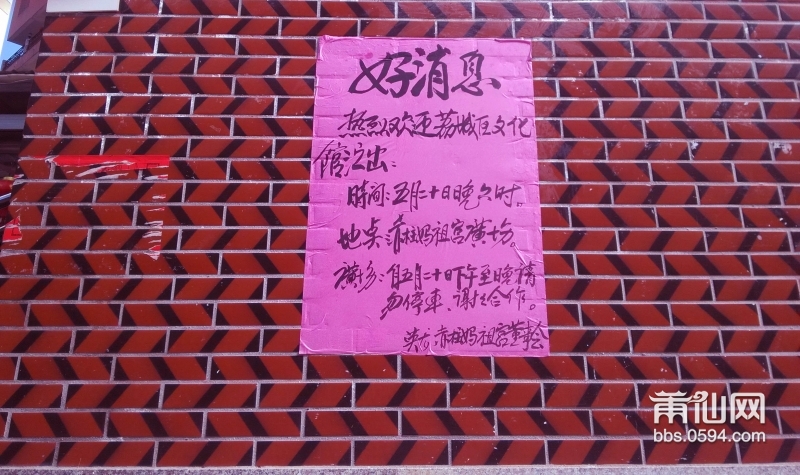 好消息
热烈欢迎荔城区文化
馆演出:
時间:五月二十日晚六时。
地桌:赤柱妈祖宫廣场。
廣场:自五月二十日下午至晚请
勿停車、谢谢合作。
赤柱妈祖宫董事会
莆仙网
bbs.0594.com